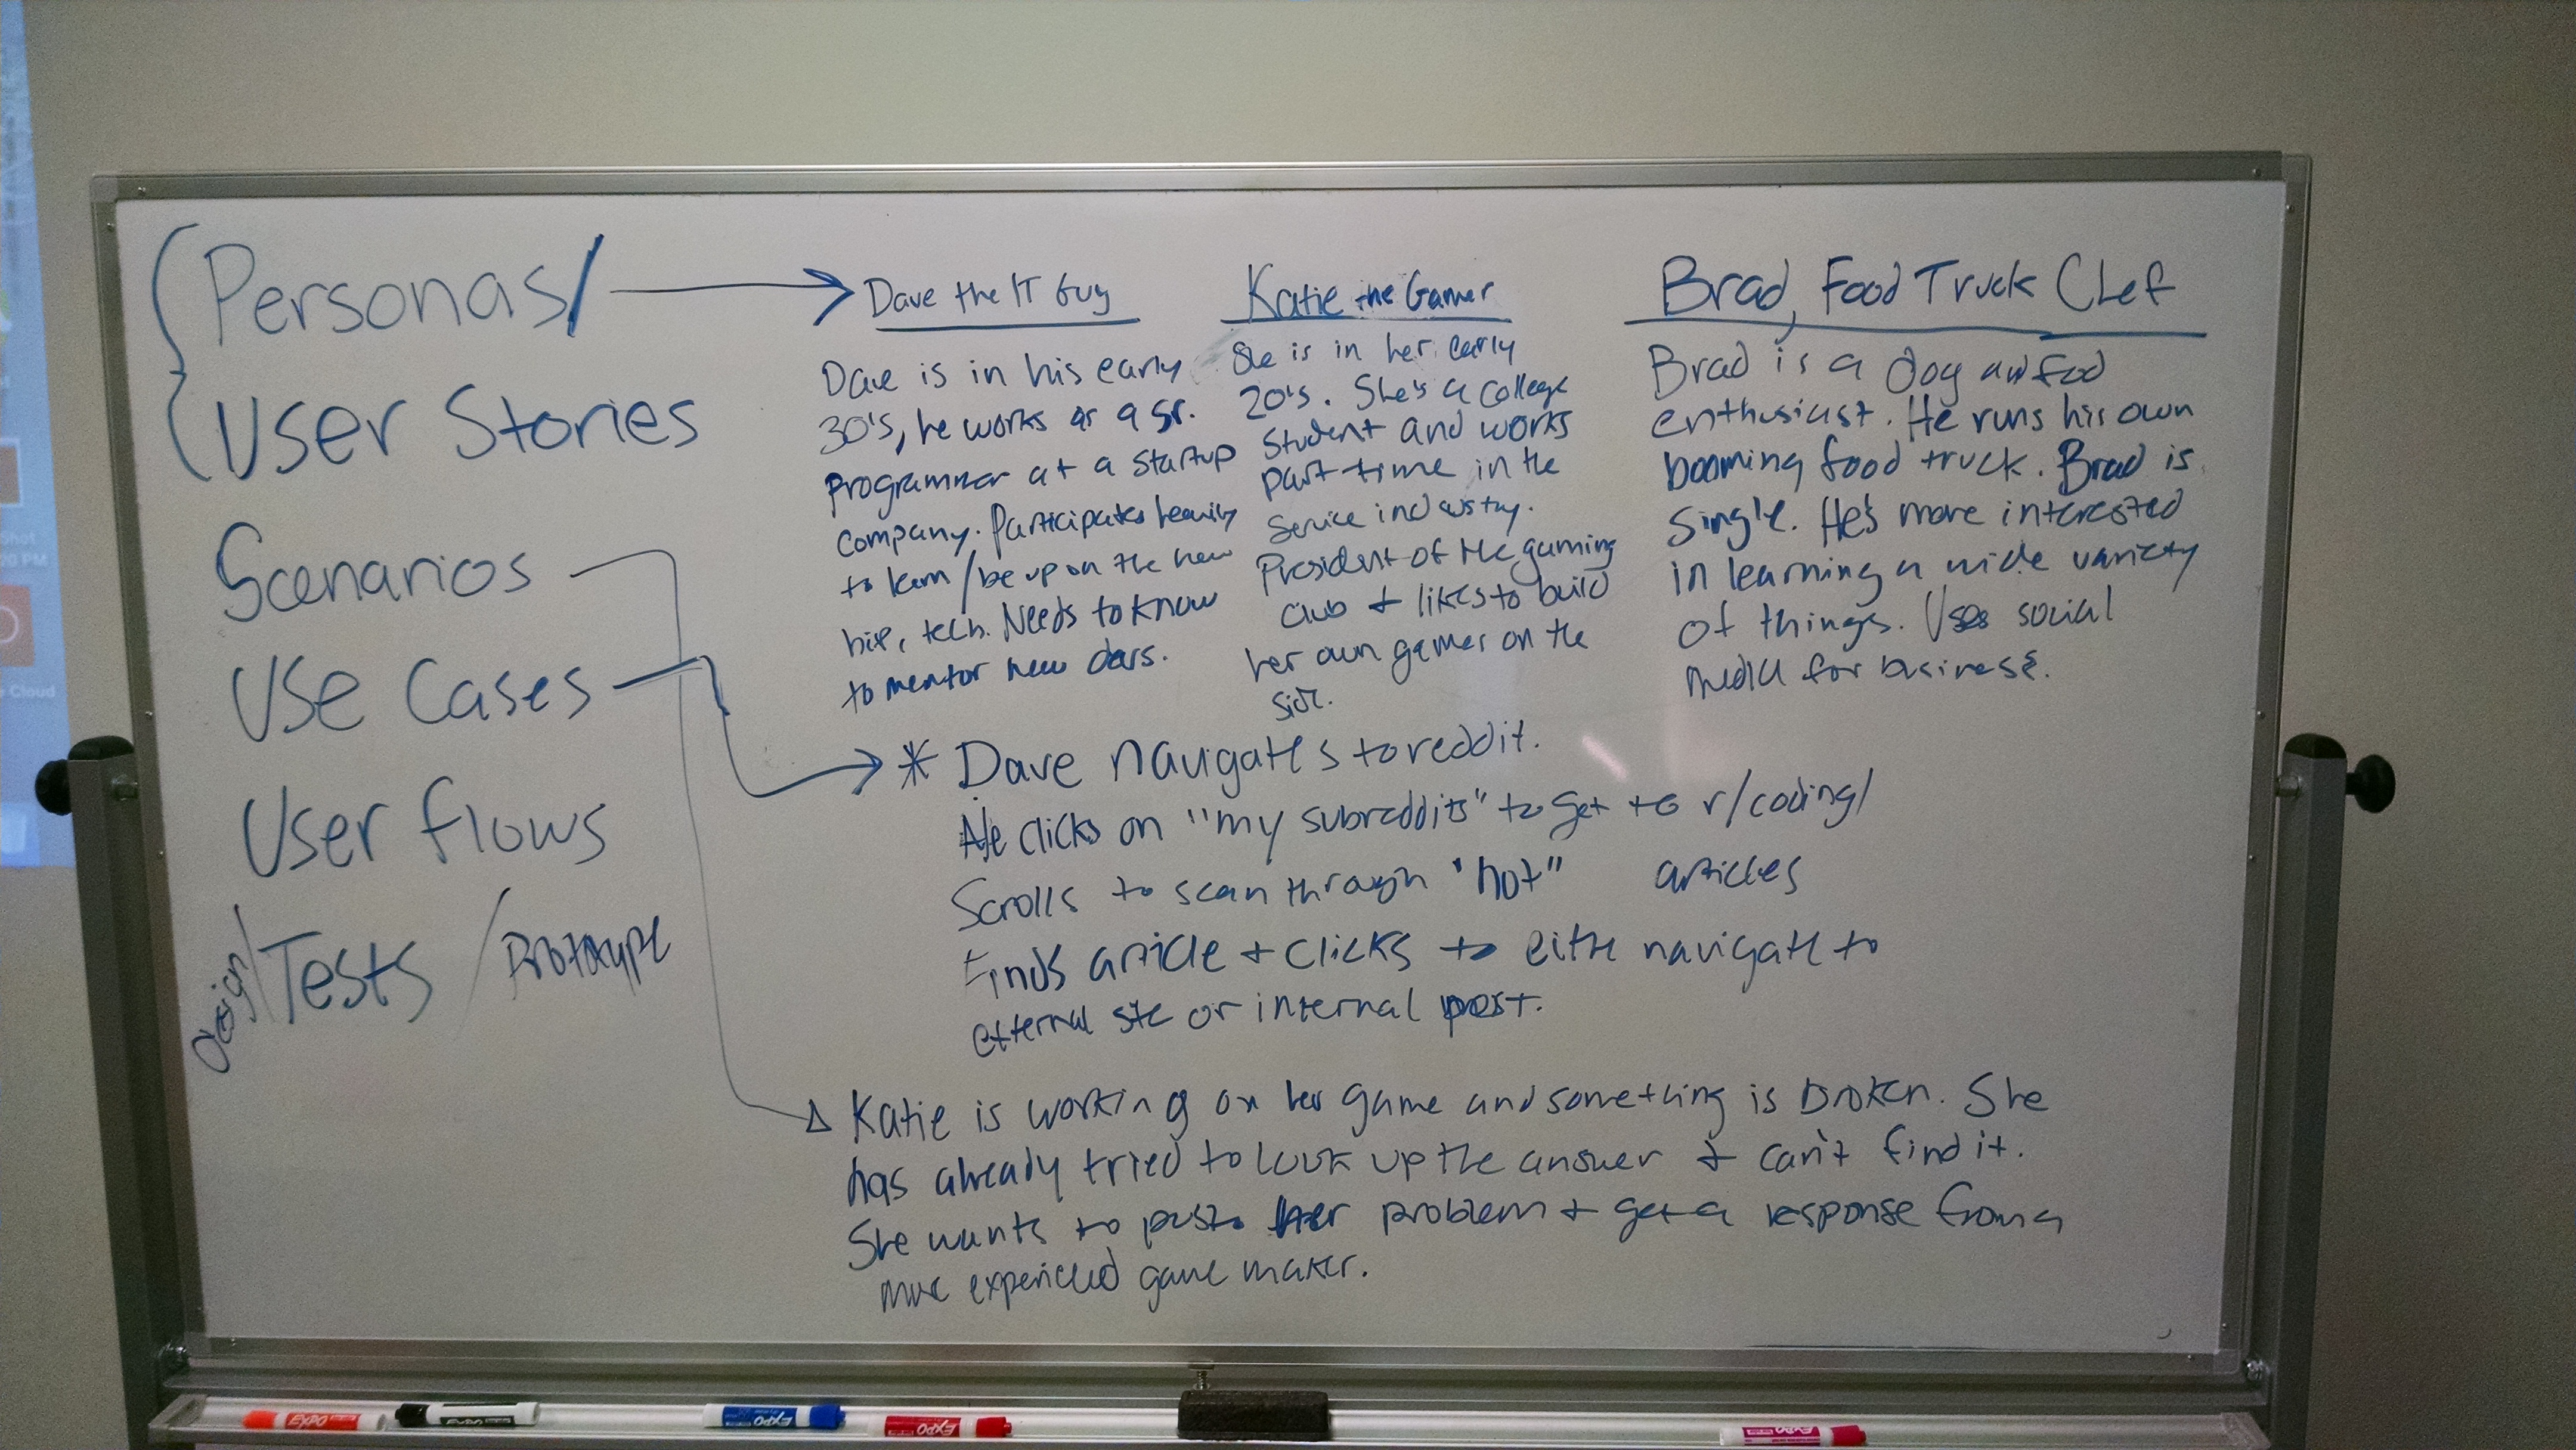 Personas/
User Stories
Scenarios
Use Cases
User flows
Design/Tests/Prototype
Dave the IT Guy
Dave is in his early
30's, he works as a Sr.
programmer at a startup
company. Participates heavily
to learn/be up on the new
hip, tech. Needs to know
to mentor new devs.
Katie the Gamer
She is in her early
20's. She's a college
Student and works
part-time in the
Service industry.
President of the gaming
club + likes to build
her own games on the
side.
Brad, Food Truck Chef
Brad is a dog and food
enthusiast. He runs his own
booming food truck. Brad is
Single. He's more interested
in learning a wide variety
of things. Uses social
media for business.
* Dave navigates to reddit.
He clicks on "my subreddits" to get to r/coding/
Scrolls to scan through "hot" articles
Finds article + clicks to either navigate to
external site or internal post.
Katie is working on her game and something is broken. She
has already tried to look up the answer + can't find it.
She wants to post her problem + get a response from a
more experienced game maker.
EXPO
EXPO
EXPO
Shot
20 PM
Cloud